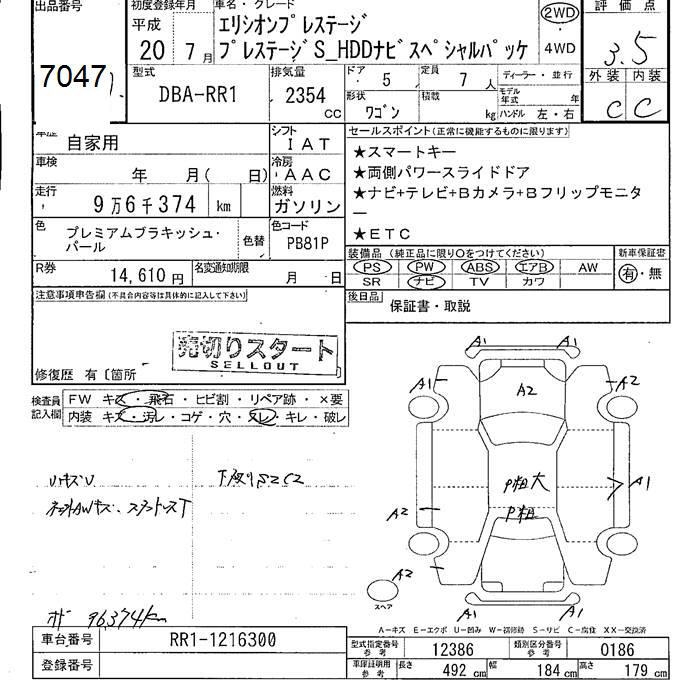 出品番号 初度登録年月 車名・グレード 2WD 評価点
7047
平成 エリシオンプレステージ
20年 7月 プレステージS_HDDナビスペシャルパッケ 4WD 3.5
型式 排気量 ドア 5 定員 7人 ディーラー・並行 外装 内装
DBA-RR1 2354cc 形状 ワゴン 積載 kg モデル年式 年 ハンドル 左・右 C C
車歴 自家用 シフト IAT セールスポイント(正常に機能するものに限ります)
車検 年 月( 日) 冷房 AAC ★スマートキー
★両側パワースライドドア
走行 9万6千374 km 燃料 ガソリン ★ナビ+テレビ+Bカメラ+Bフリップモニタ
ー
色 プレミアムブラキッシュ・パール 色替 色コード PB81P ★ETC
装備品(純正品に限り○をつけてください) 新車保証書
R券 14,610円 名変通知期限 月 日 PS PW ABS エアB AW 有・無
SR ナビ TV カワ
注意事項申告欄(不具合内容等は具体的に記入して下さい) 後日品 保証書・取説
売切りスタート
SELLOUT
修復歴 有〔箇所
検査員記入欄 FW キズ・飛石・ヒビ割・リペア跡・×要
内装 キズ・汚レ・コゲ・穴・スレ・キレ・破レ
A1 A1
A1 A2 A2
下廻りS2C2
P粗大 A1
A2 P粗
A2
スペア
A1 A1
96374km
A-キズ E-エクボ U-凹み W-補修跡 S-サビ C-腐食 XX-交換済
車台番号 RR1-1216300 型式指定番号 参考 12386 類別区分番号 参考 0186
登録番号 車庫証明用 参考 長さ 492cm 幅 184cm 高さ 179cm